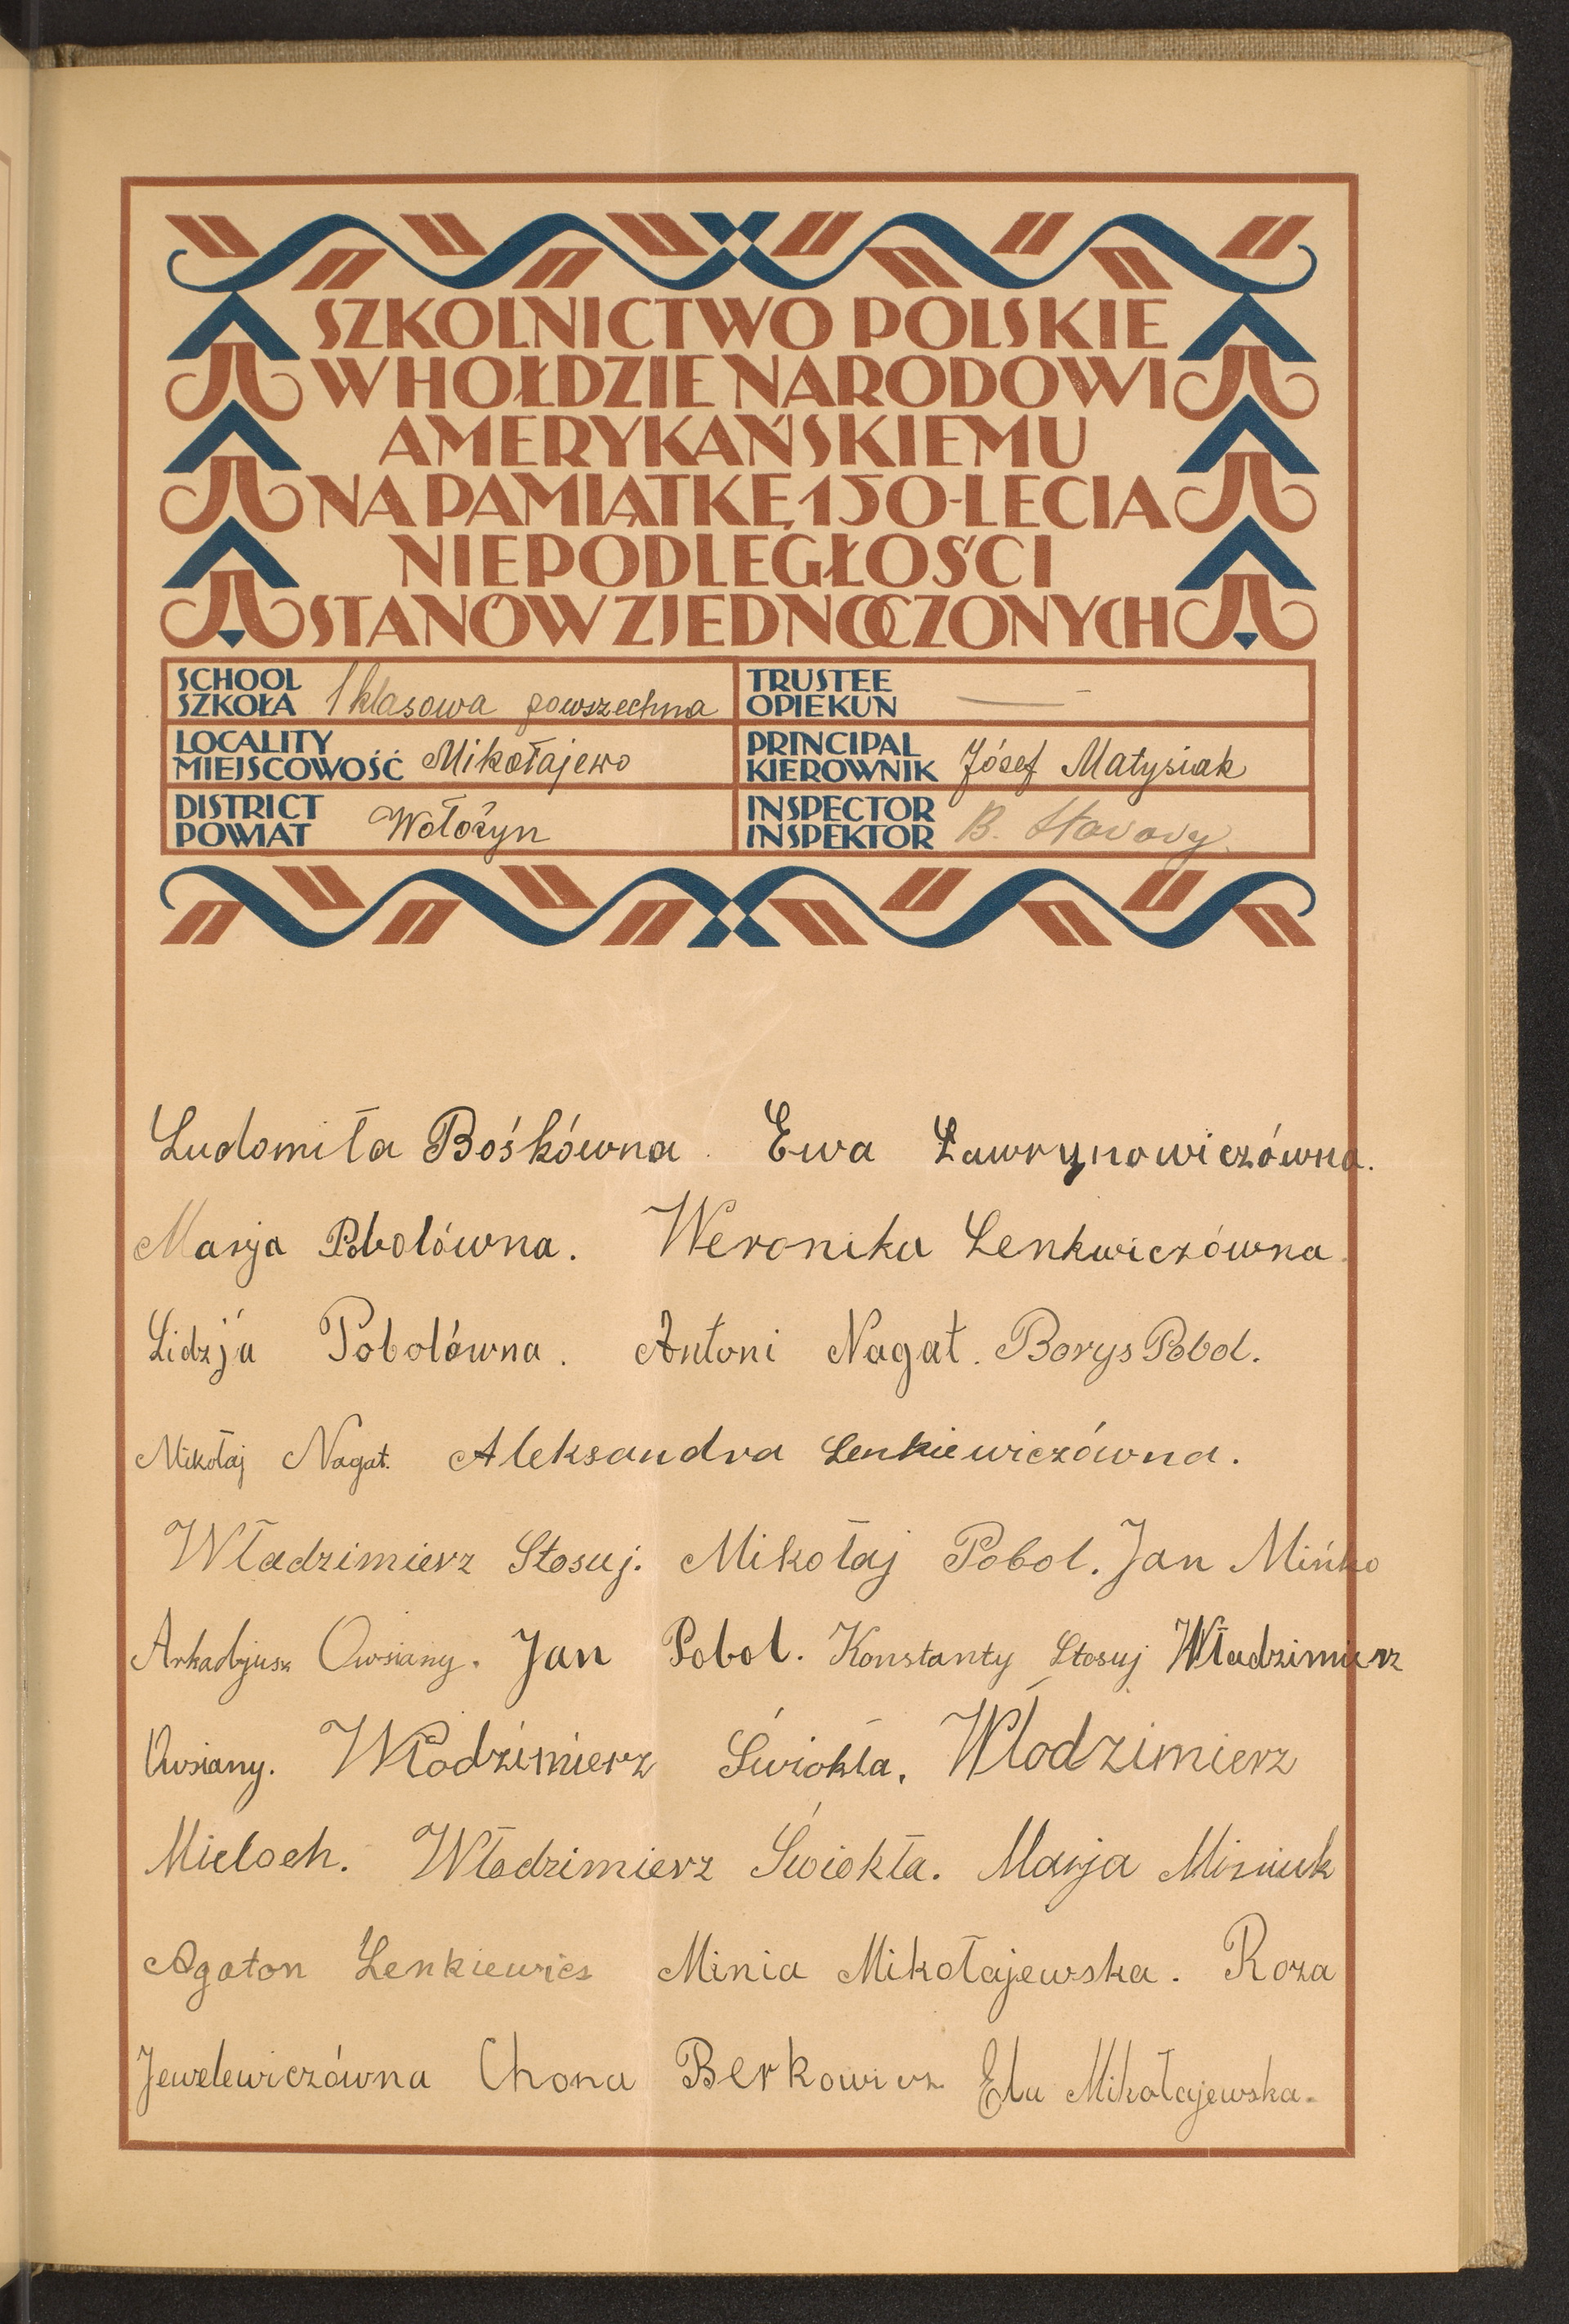 SZKOLNICTWO POLSKIE
W HOŁDZIE NARODOWI
AMERYKAŃSKIEMU
NA PAMIĄTKĘ 150-LECIA
NIEPODLEGŁOŚCI
STANÓW ZJEDNOCZONYCH
SCHOOL
SZKOŁA 1 klasowa powszechna
TRUSTEE
OPIEKUN —
LOCALITY
MIEJSCOWOŚĆ Mikołajewo
PRINCIPAL
KIEROWNIK Józef Matysiak
DISTRICT
POWIAT Wołożyn
INSPECTOR
INSPEKTOR B.
Ludomiła Bośkówna. Ewa Ławrynowiczówna.
Marja Pobolówna. Weronika Lenkwiczówna.
Lidzja Pobolówna. Antoni Nagat. Borys Pobol.
Mikołaj Nagat. Aleksandra Lenkiewiczówna.
Władzimierz Stosuj. Mikołaj Pobol. Jan Mińko
Arkadjusz Owsiany. Jan Pobol. Konstanty Stosuj Władzimierz
Owsiany. Włodzimierz Świokła. Włodzimierz
Mieloch. Włodzimierz Świokła. Marja Misiuk
Agaton Lenkiewics Minia Mikołajewska. Roza
Jewelewiczówna Chona Berkowicz Ela Mikołajewska.